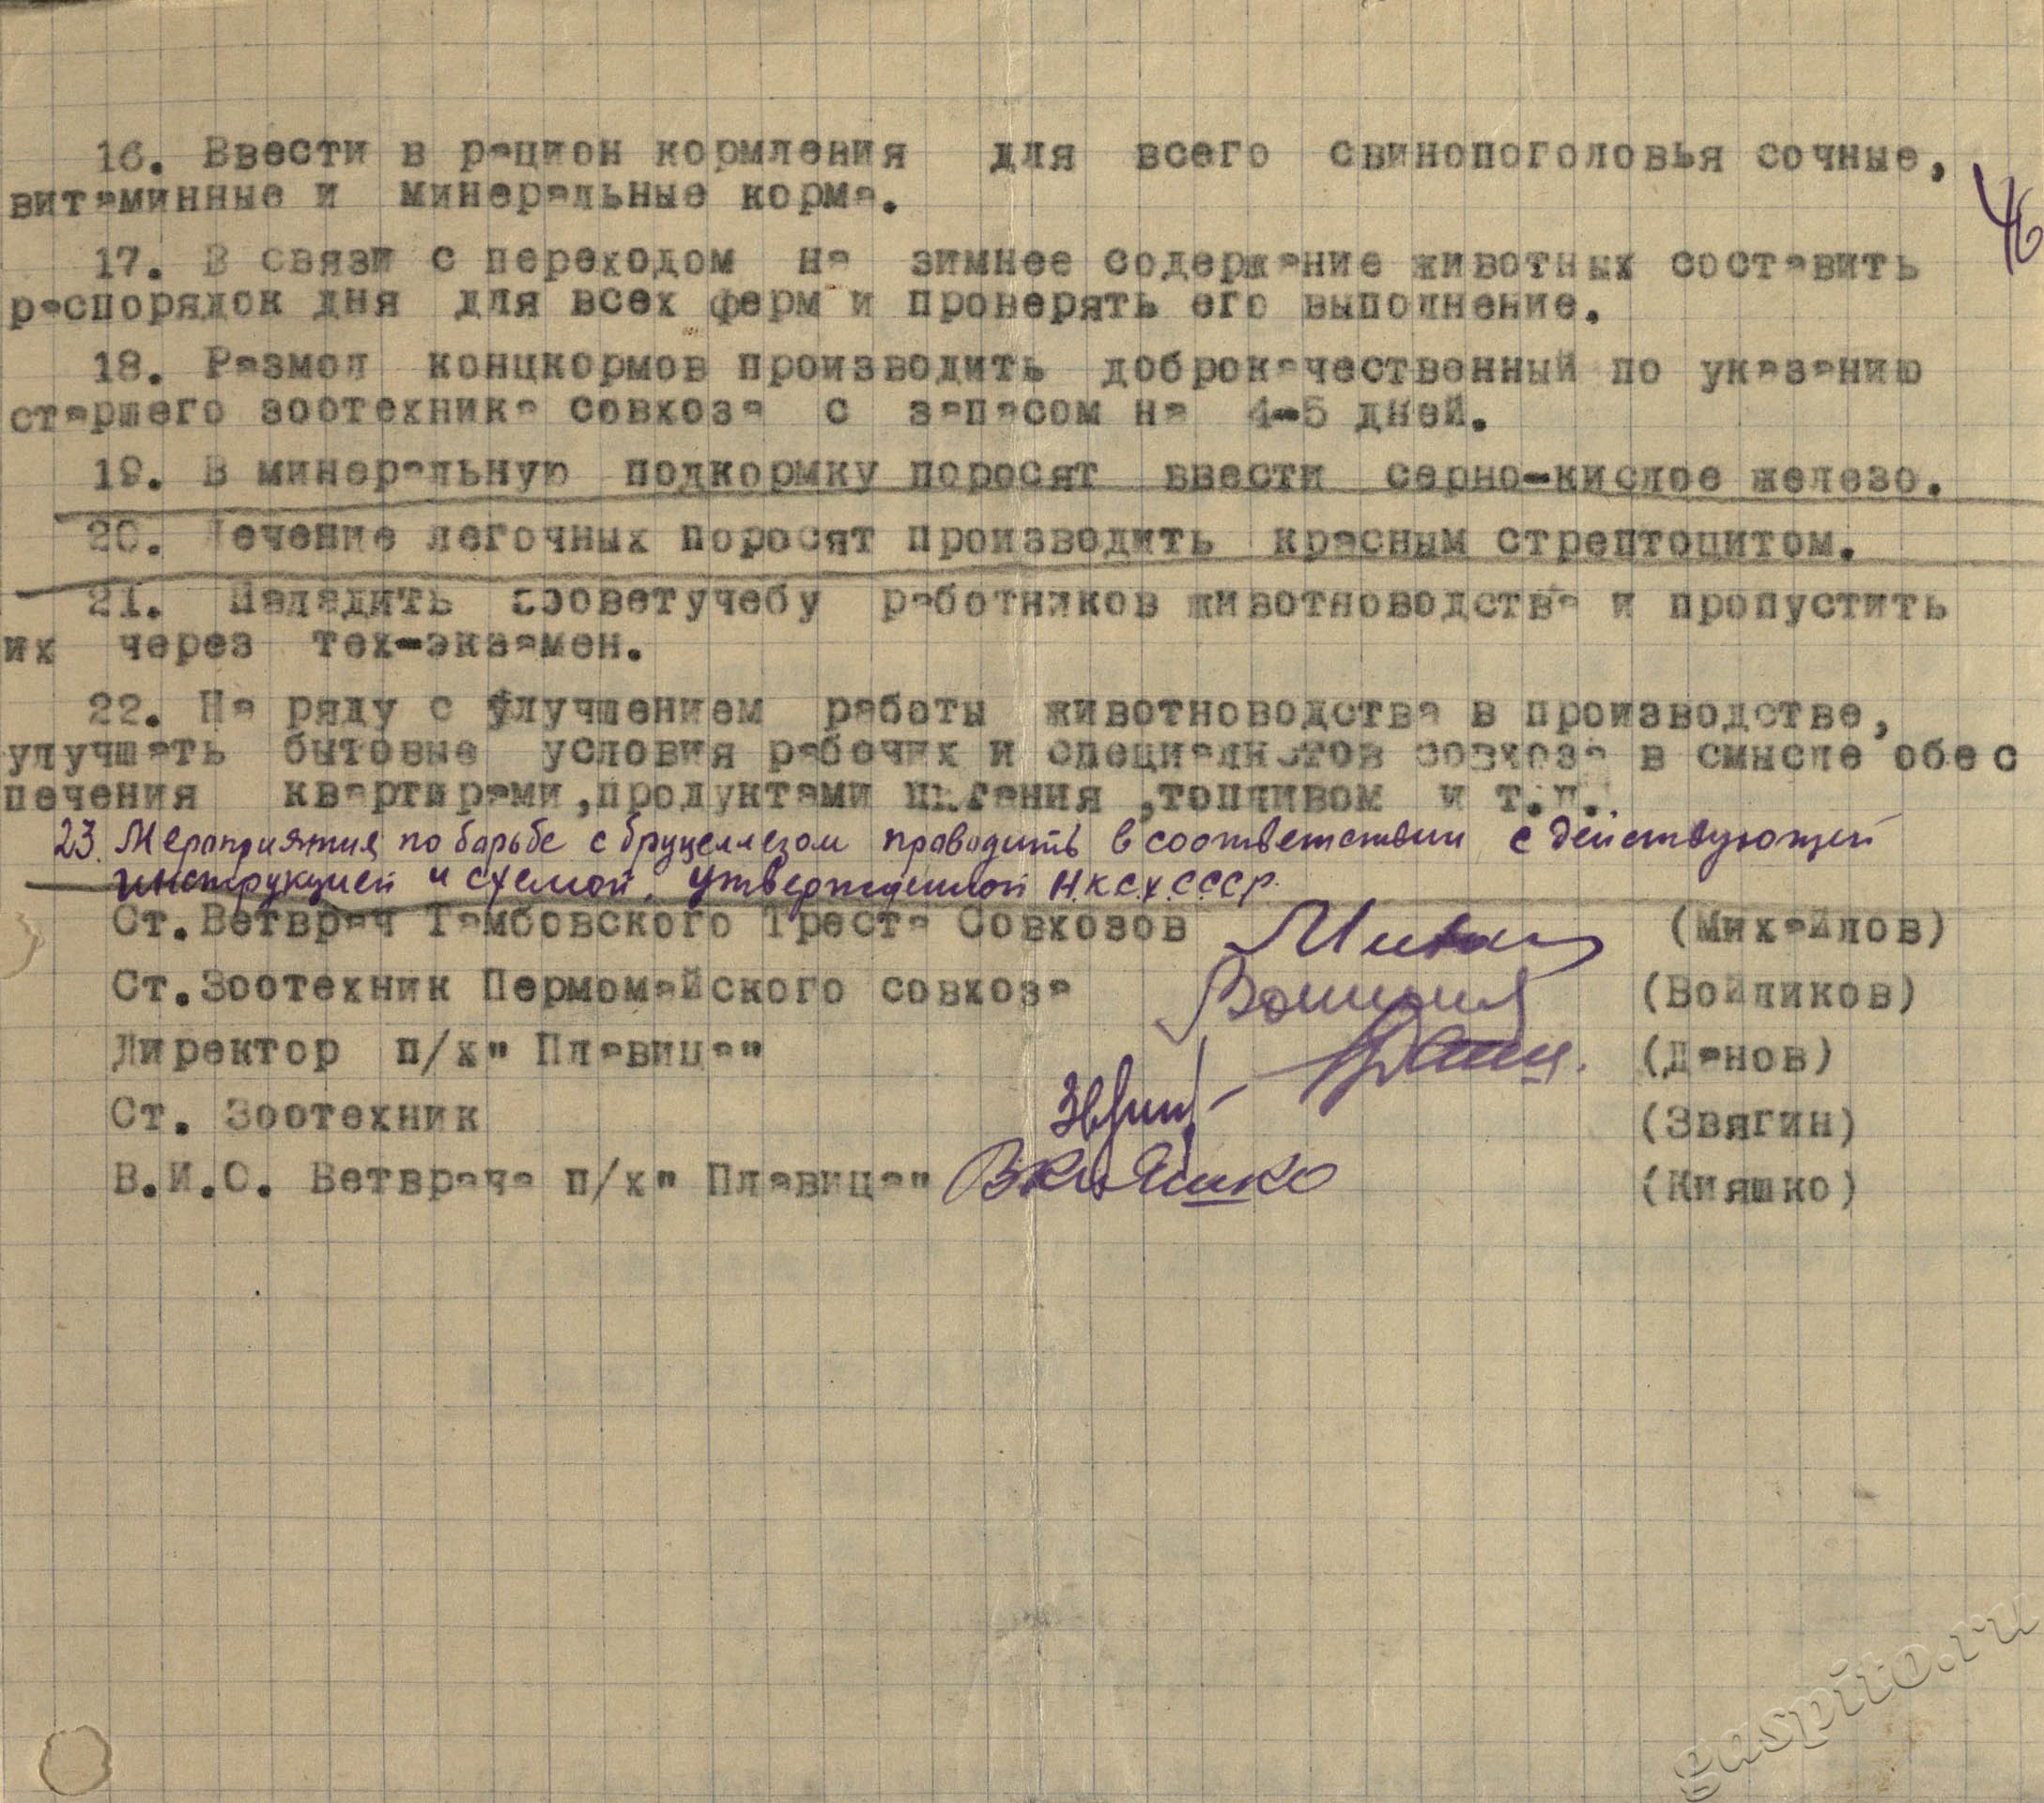 16. Ввести в рацион кормления для всего свинопоголовья сочные,
46
витаминные и минеральные корма.
17. В связи с переходом на зимнее содержание животных составить
распорядок дня для всех ферм и проверять его выполнение.
18. Размол концкормов производить доброкачественный по указанию
старшего зоотехника совхоза с запасом на 4-5 дней.
19. В минеральную подкормку поросят ввести серно-кислое железо.
20. Лечение легочных поросят производить красным стрептоцитом.
21. Наладить зооветучебу работников животноводства и пропустить
их через тех-экзамен.
22. На ряду с улучшением работы животноводства в производстве,
улучшать бытовые условия рабочих и специалистов совхоза в смысле обес
печения квартирами, продуктами питания ,топливом и т.д.
23. Мероприятия по барьбе с бруцеллезом проводить в соответствии с действующей
инструкцией и схемой, утвержденной Н.К.С.Х.СССР.
Ст.Ветврач Тамбовского Треста Совхозов (Михайлов)
Ст.Зоотехник Пермомайского совхоза (Войликов)
Директор п/х" Плавица" (Данов)
Ст. Зоотехник (Звягин)
В.И.О. Ветврача п/х" Плавица" ВКияшко (Кияшко)
gaspito.ru